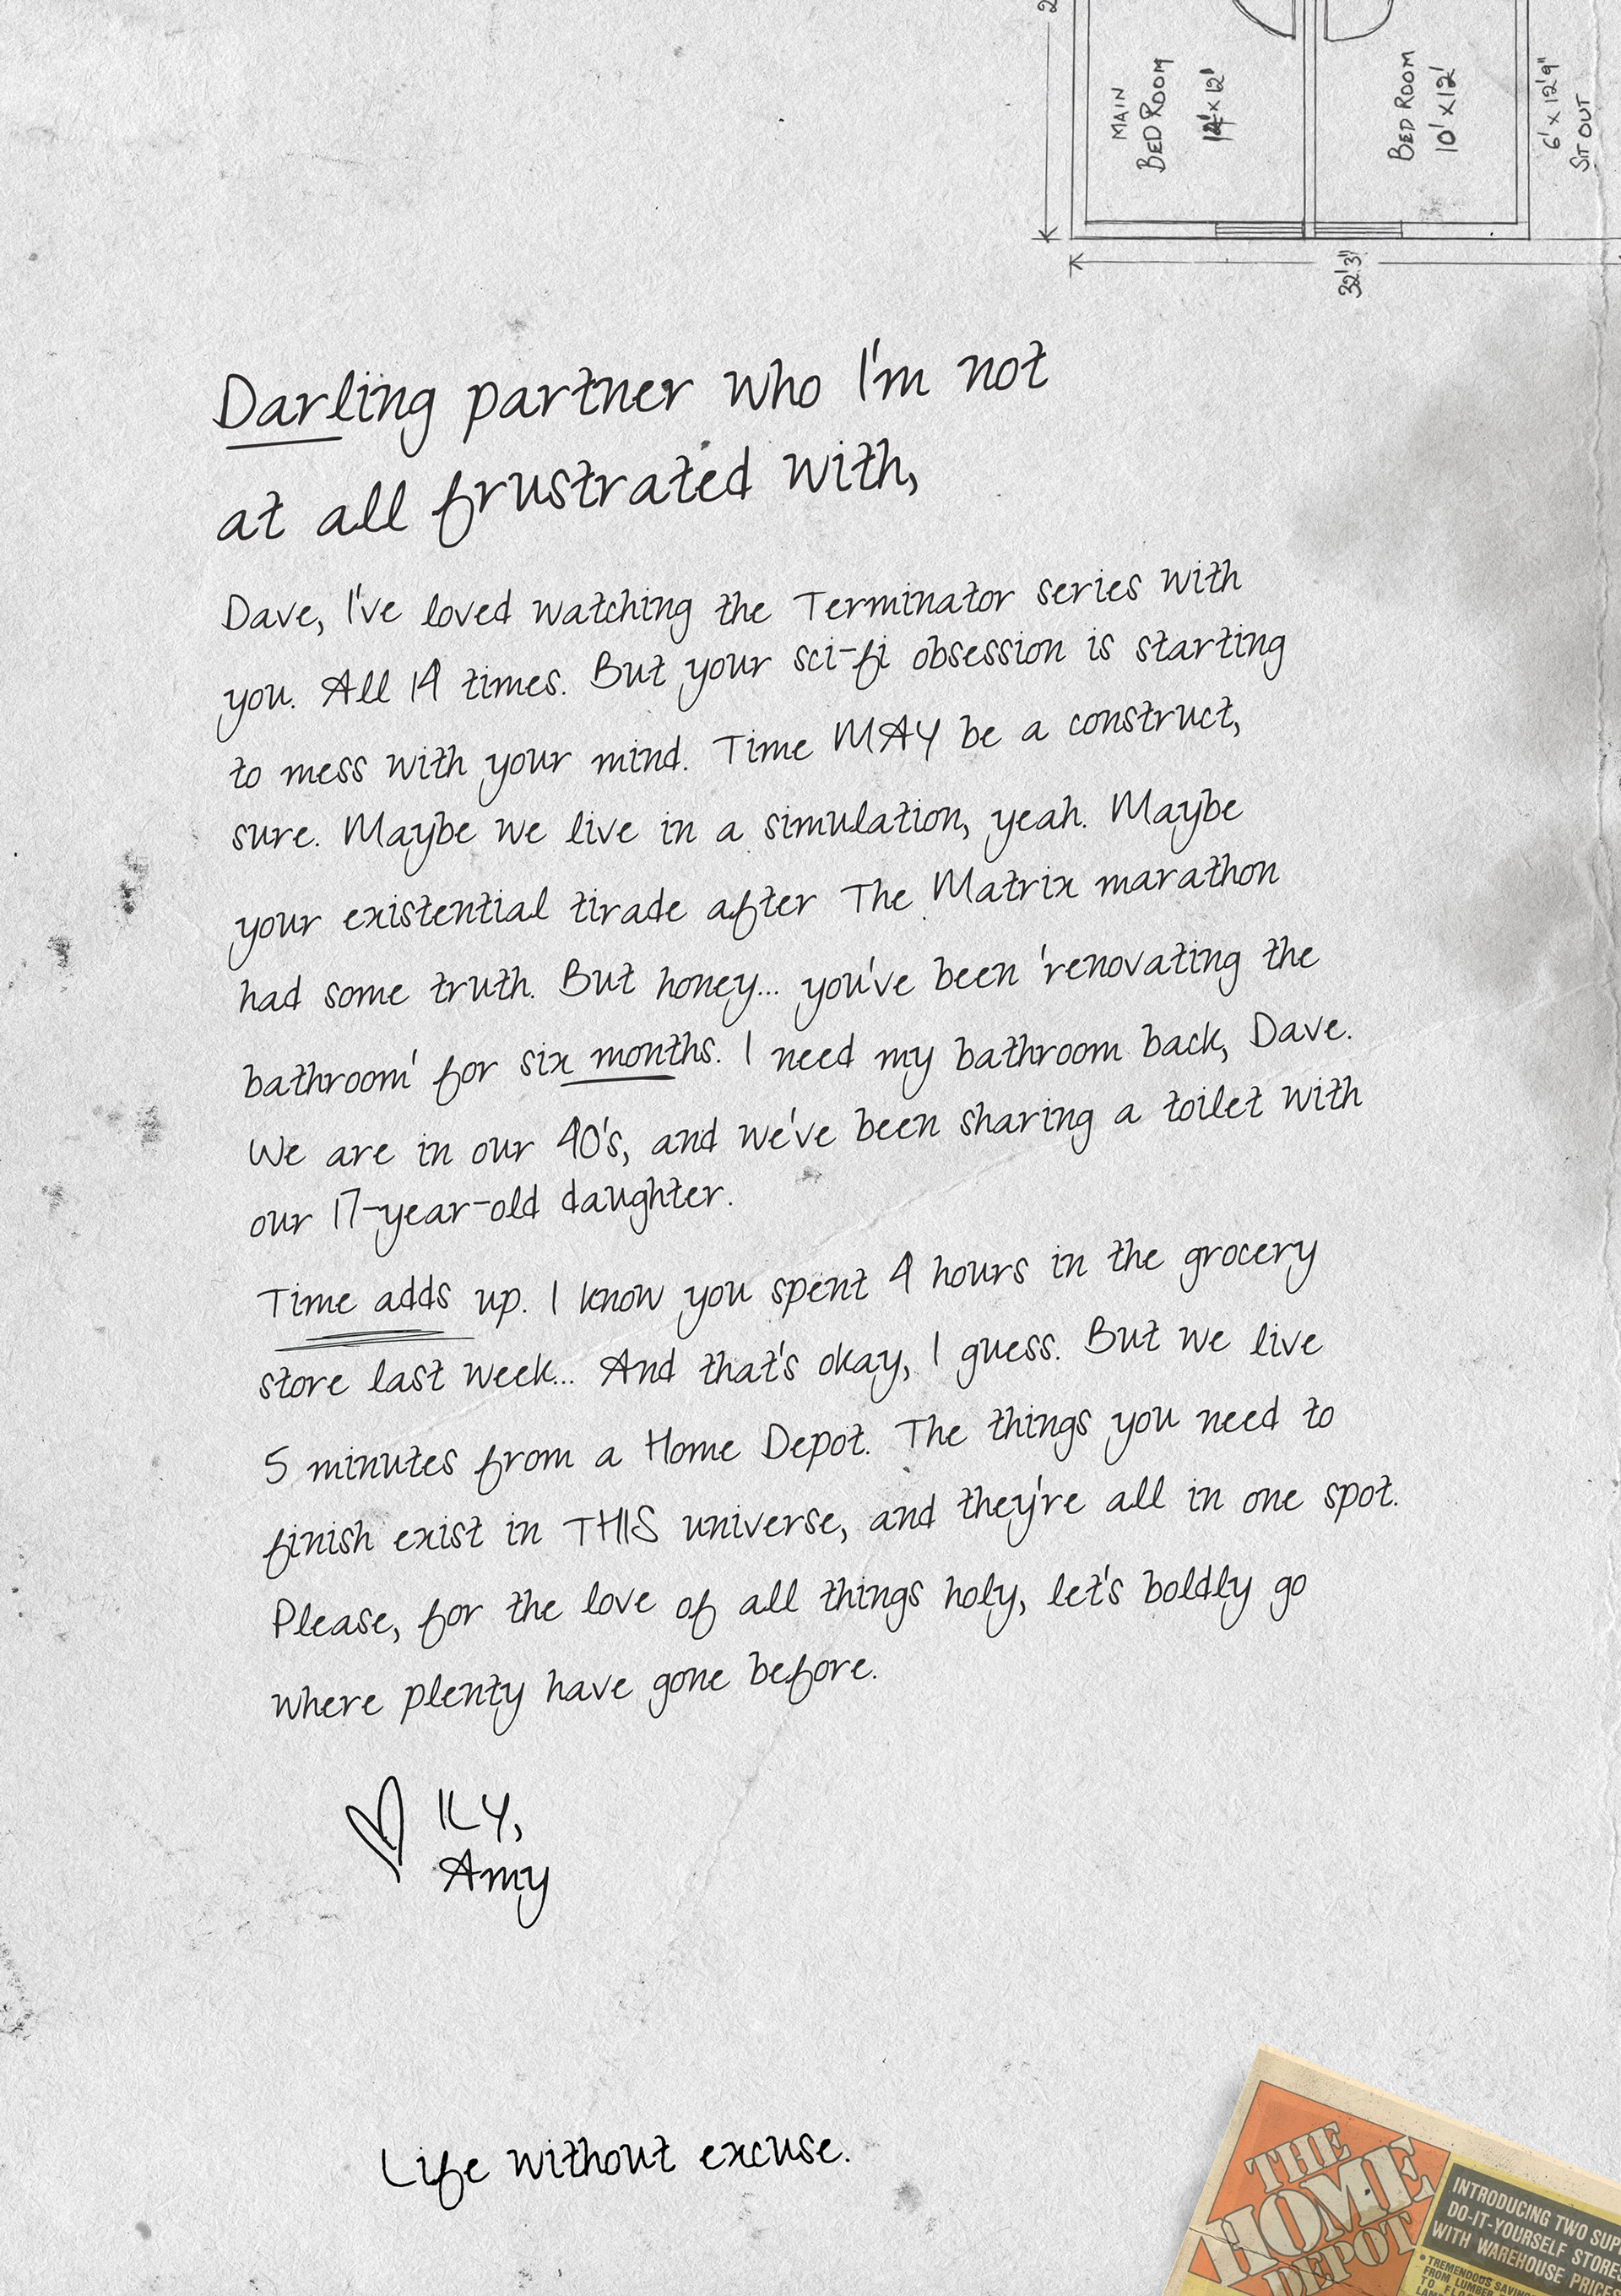 MAIN
BED ROOM
14' x 12'
BED ROOM
10' x 12'
6' x 12'9"
SIT OUT
32'3"
Darling partner who I'm not
at all frustrated with,
Dave, I've loved watching the Terminator series with
you. All 14 times. But your sci-fi obsession is starting
to mess with your mind. Time MAY be a construct,
sure. Maybe we live in a simulation, yeah. Maybe
your existential tirade after The Matrix marathon
had some truth. But honey... you've been 'renovating the
bathroom' for six months. I need my bathroom back, Dave.
We are in our 40's, and we've been sharing a toilet with
our 17-year-old daughter.
Time adds up. I know you spent 4 hours in the grocery
store last week... And that's okay, I guess. But we live
5 minutes from a Home Depot. The things you need to
finish exist in THIS universe, and they're all in one spot.
Please, for the love of all things holy, let's boldly go
where plenty have gone before.
ILY,
Amy
Life without excuse.
THE
HOME
DEPOT
INTRODUCING TWO
DO-IT-YOURSELF
WITH WAREHOUSE
• TREMENDOUS
FROM LUMBER
TO